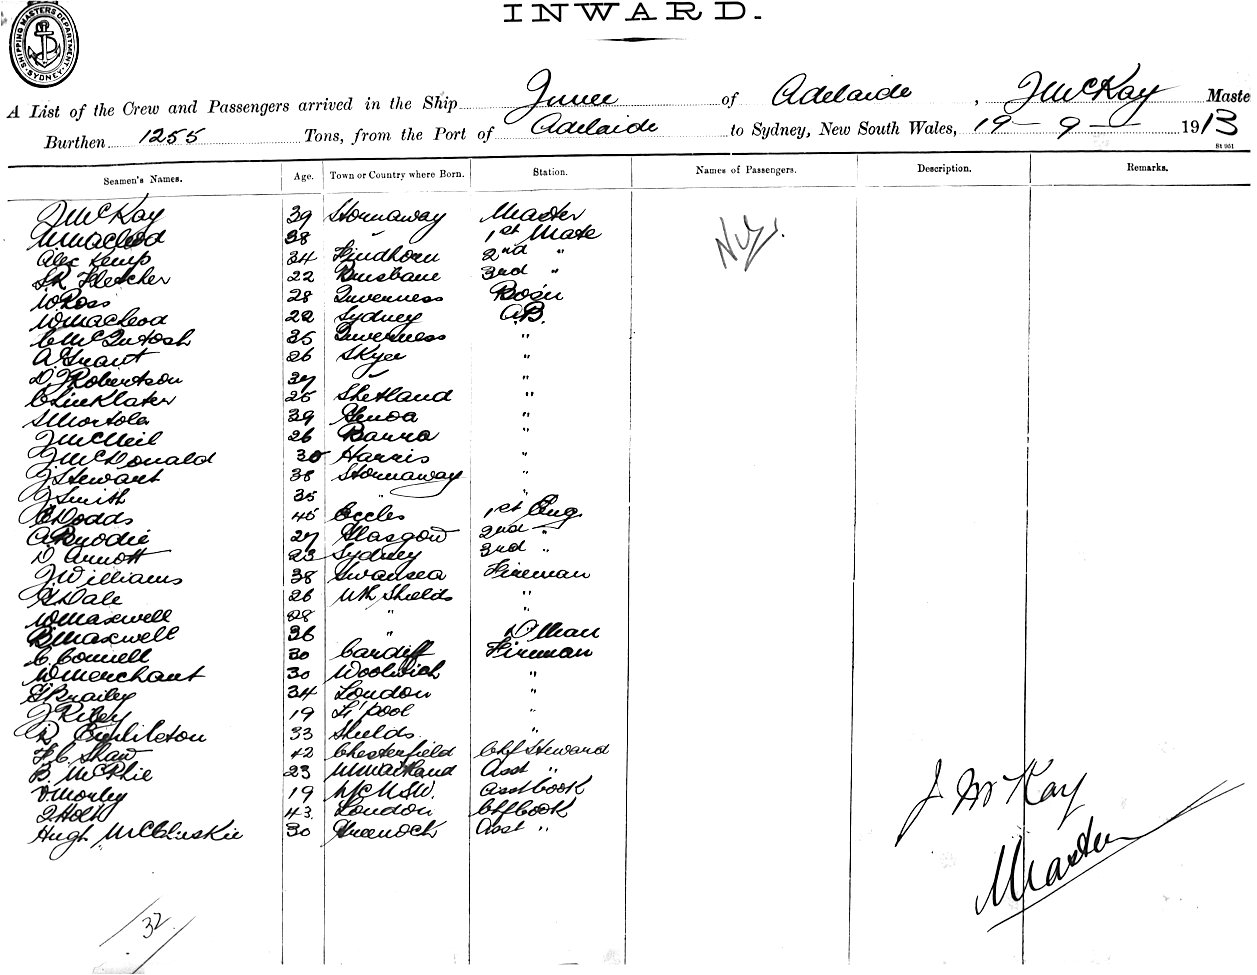 INWARD.
SHIPPING MASTERS DEPARTMENT. SYDNEY
A List of the Crew and Passengers arrived in the Ship Junee of Adelaide, J McKay Maste
Burthen 1255 Tons, from the Port of Adelaide to Sydney, New South Wales, 19 - 9 - 1913
St 951
Seamen's Names. Age. Town or Country where Born. Station. Names of Passengers. Description. Remarks.
J McKay 39 Stornaway Master
M Macleod 38 " 1st Mate
Nil.
Alex Kemp 34 Findhorn 2nd "
Fletcher 22 Brisbane 3rd "
W Ross 28 Inverness Bosn
W Macleod 22 Sydney A.B.
C McIntosh 35 Inverness "
A Grant 26 Skye "
D J Robertson 37 " "
C Linklater 25 Shetland "
S Mortola 39 Genoa "
J McNeil 26 Barra "
J McDonald 30 Harris "
J Stewart 38 Stornaway "
J Smith 35 " "
Dodds 45 Eccles 1st Eng
A Brodie 27 Glasgow 2nd "
D Arnott 23 Sydney 3rd "
J Williams 38 Swansea Fireman
G Dale 26 Nth Shields "
W Maxwell 28 " "
B Maxwell 36 " D'Man
C Connell 30 Cardiff Fireman
W Merchant 30 Woolwich "
G Brailey 34 London "
J Riley 19 L'pool "
33 Shields "
F C Shaw 42 Chesterfield Chf Steward
B. McPhie 23 Asst "
V Morley 19 N.S.W. Asst Cook
J Holt 43 London Chf Cook
Hugh McCluskie 30 Greenock Asst "
J McKay
Master
32